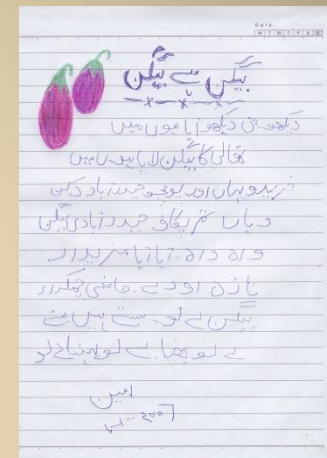 Date
M T W T F S S
بیگن ہے بیگن
دیکھو جی دیکھو لایا ہوں میں
تھالی کا بیگن لایا ہوں میں
خریدو یہاں اور پوچھو حیدرآباد دکن
وہاں تم پکاؤ حیدرآبادی بیگن
واہ واہ آہا آہا مزیدار
تازہ اودے چمکدار
بیگن لے لو سستے ہیں
لے لو بھیا لے لو بہنا لے لو
امین